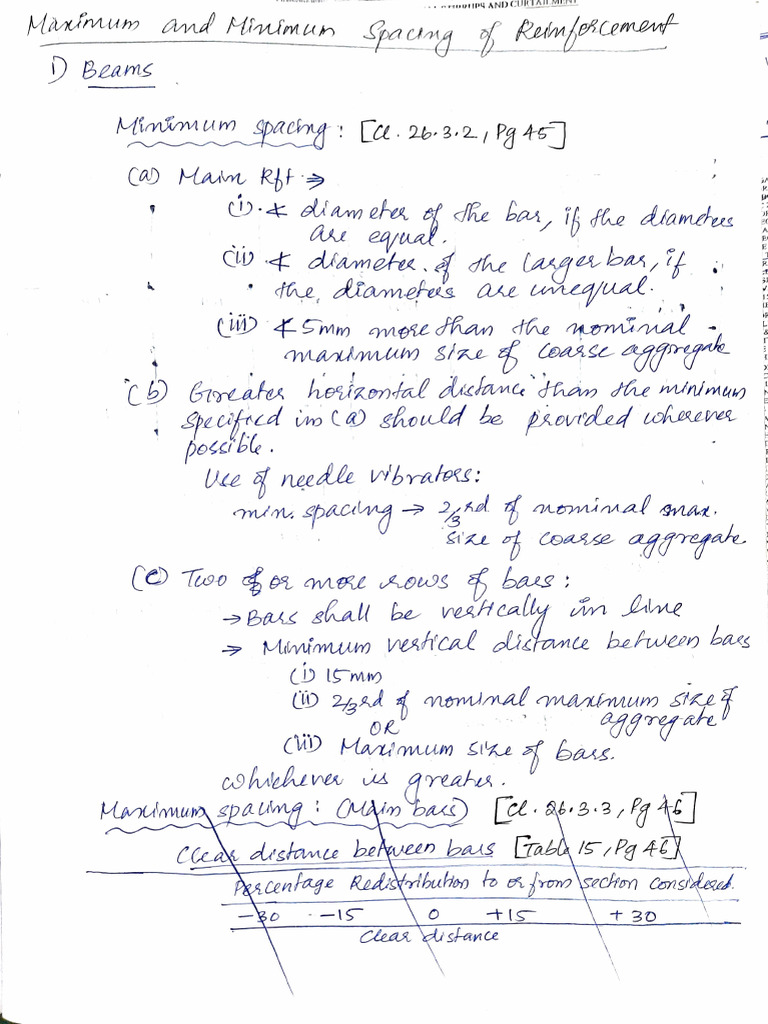 STIRRUPS AND CURTAILMENT
Maximum and Minimum Spacing of Reinforcement
1) Beams
Minimum spacing: [Cl. 26.3.2, Pg 45]
(a) Main Rft ⇒
(i) ≮ diameter of the bar, if the diameters
are equal.
(ii) ≮ diameter of the larger bar, if
the diameters are unequal.
(iii) ≮ 5mm more than the nominal
maximum size of coarse aggregate
(b) Greater horizontal distance than the minimum
specified in (a) should be provided wherever
possible.
Use of needle vibrators:
min. spacing → 2/3rd of nominal max.
size of coarse aggregate
(c) Two or more rows of bars:
→ Bars shall be vertically in line
→ Minimum vertical distance between bars
(i) 15mm
(ii) 2/3rd of nominal maximum size of
aggregate
OR
(iii) Maximum size of bars.
whichever is greater.
Maximum spacing: (Main bars) [Cl. 26.3.3, Pg 46]
Clear distance between bars [Table 15, Pg 46]
Percentage Redistribution to or from section considered.
-30 -15 0 +15 +30
Clear distance